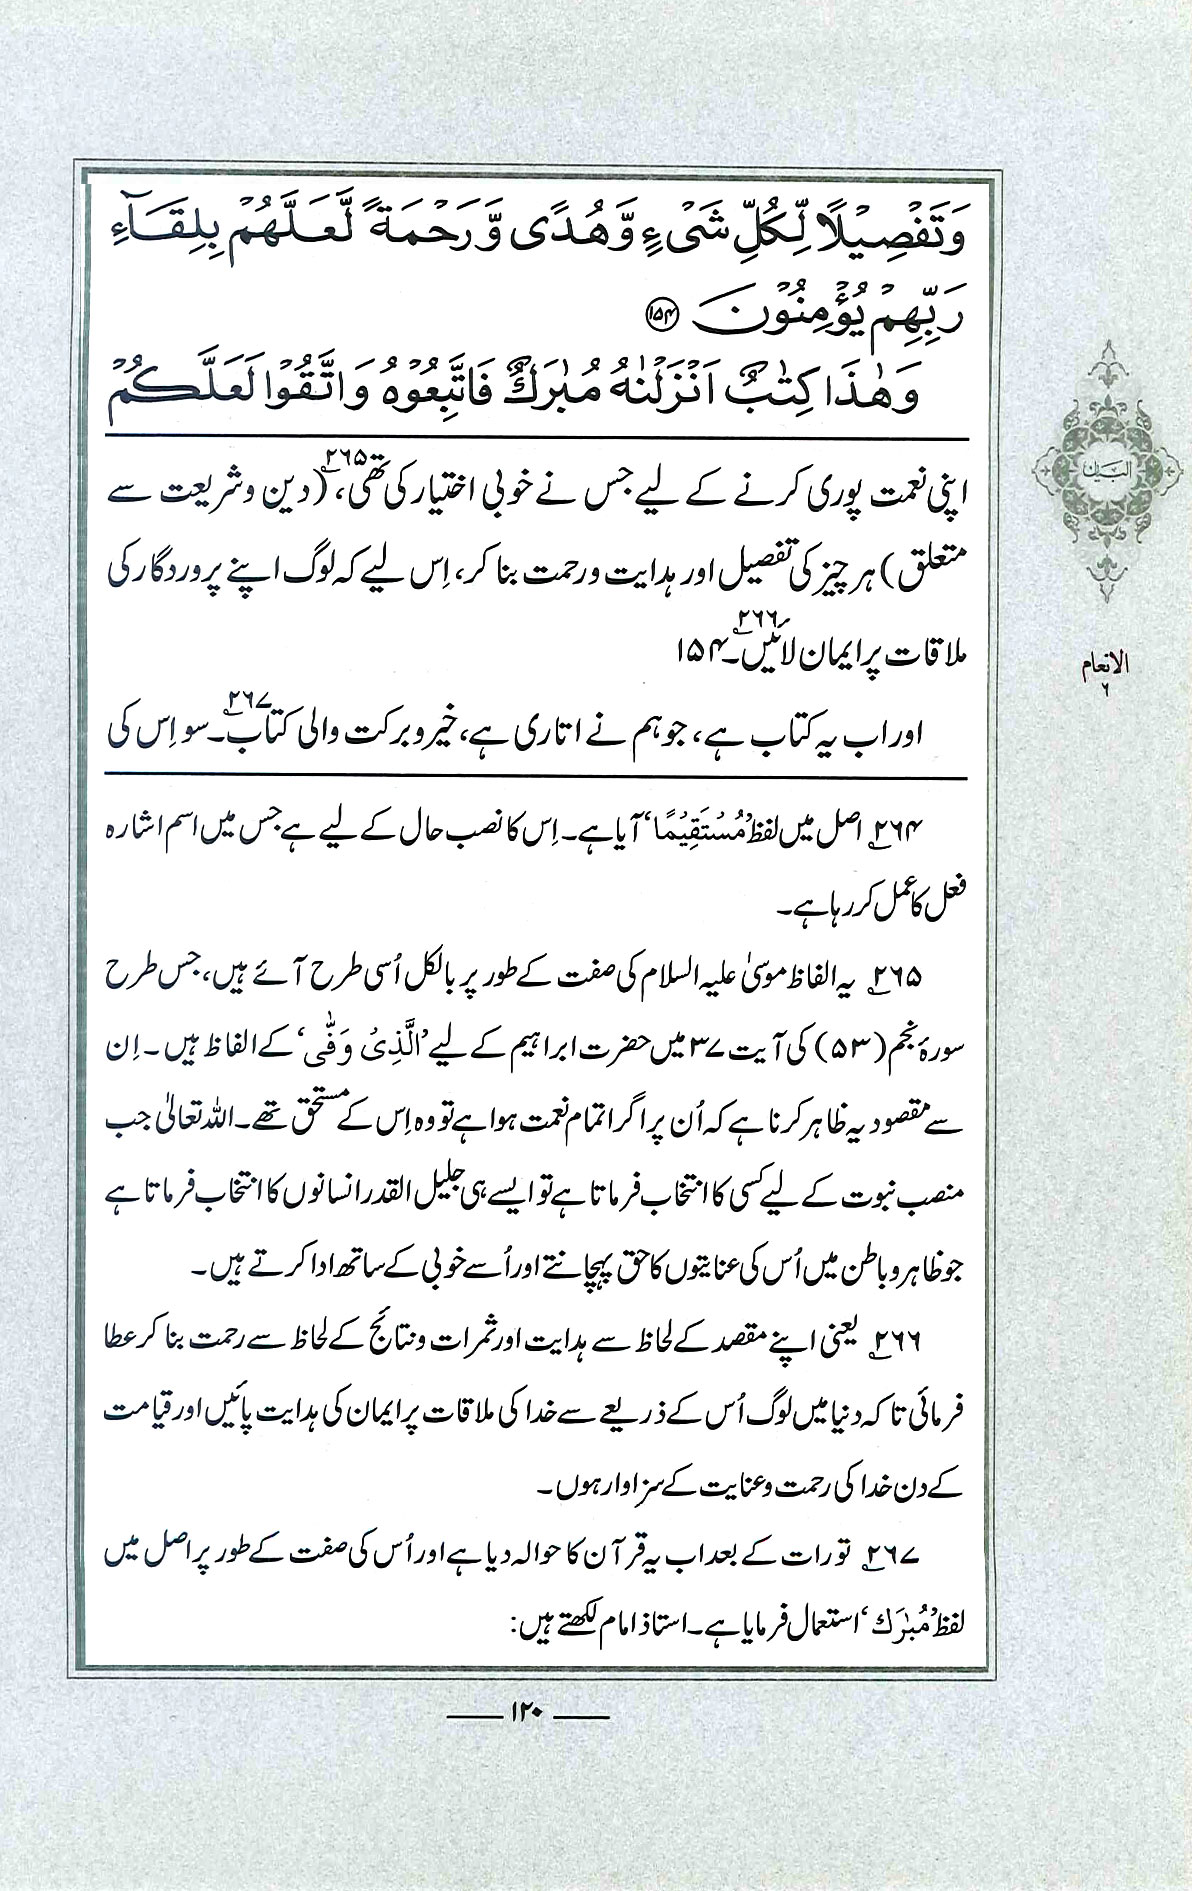 وَتَفْصِيْلًا لِّكُلِّ شَيْءٍ وَّهُدًى وَّرَحْمَةً لَّعَلَّهُمْ بِلِقَآءِ
رَبِّهِمْ يُؤْمِنُوْنَ ﴿۱۵۴﴾
وَهٰذَا كِتٰبٌ اَنْزَلْنٰهُ مُبٰرَكٌ فَاتَّبِعُوْهُ وَاتَّقُوْا لَعَلَّكُمْ
اپنی نعمت پوری کرنے کے لیے جس نے خوبی اختیار کی تھی،۲۶۵ (دین و شریعت سے
متعلق) ہر چیز کی تفصیل اور ہدایت و رحمت بنا کر، اِس لیے کہ لوگ اپنے پروردگار کی
ملاقات پر ایمان لائیں۔۲۶۶ ۱۵۴
اور اب یہ کتاب ہے، جو ہم نے اتاری ہے، خیر و برکت والی کتاب۔۲۶۷ سو اِس کی
۲۶۴؎ اصل میں لفظ ’مُسْتَقِيْمًا‘ آیا ہے۔ اِس کا نصب حال کے لیے ہے جس میں اسم اشارہ
فعل کا عمل کر رہا ہے۔
۲۶۵؎ یہ الفاظ موسیٰ علیہ السلام کی صفت کے طور پر بالکل اُسی طرح آئے ہیں، جس طرح
سورۂ نجم (۵۳) کی آیت ۳۷ میں حضرت ابراہیم کے لیے ’الَّذِيْ وَفّٰى‘ کے الفاظ ہیں۔ اِن
سے مقصود یہ ظاہر کرنا ہے کہ اُن پر اگر اتمام نعمت ہوا ہے تو وہ اِس کے مستحق تھے۔ اللہ تعالیٰ جب
منصب نبوت کے لیے کسی کا انتخاب فرماتا ہے تو ایسے ہی جلیل القدر انسانوں کا انتخاب فرماتا ہے
جو ظاہر و باطن میں اُس کی عنایتوں کا حق پہچانتے اور اُسے خوبی کے ساتھ ادا کرتے ہیں۔
۲۶۶؎ یعنی اپنے مقصد کے لحاظ سے ہدایت اور ثمرات و نتائج کے لحاظ سے رحمت بنا کر عطا
فرمائی تاکہ دنیا میں لوگ اُس کے ذریعے سے خدا کی ملاقات پر ایمان کی ہدایت پائیں اور قیامت
کے دن خدا کی رحمت و عنایت کے سزاوار ہوں۔
۲۶۷؎ تورات کے بعد اب یہ قرآن کا حوالہ دیا ہے اور اُس کی صفت کے طور پر اصل میں
لفظ ’مُبٰرَك‘ استعمال فرمایا ہے۔ استاذ امام لکھتے ہیں:
البیان
الانعام
۶
۱۲۰